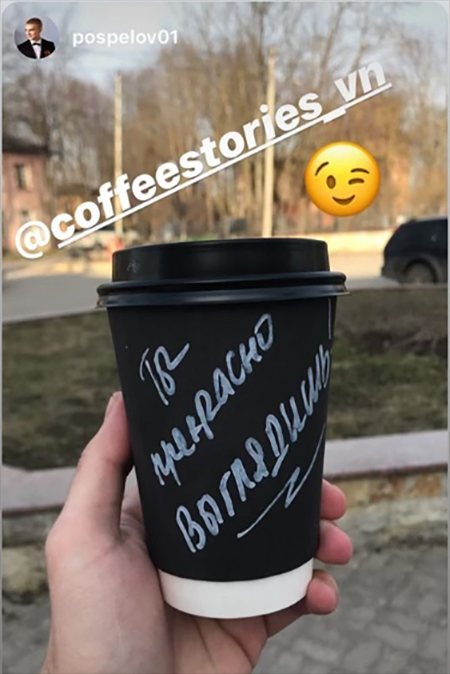 pospelov01
@coffeestories_vn
Ты
прекрасно
Выглядишь